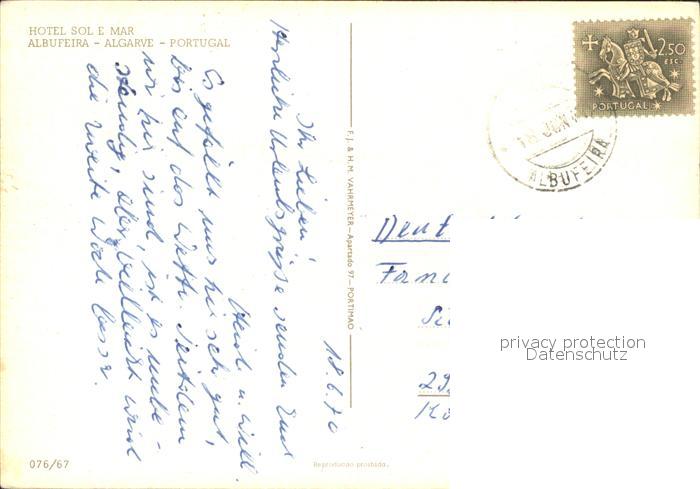 HOTEL SOL E MAR
ALBUFEIRA - ALGARVE - PORTUGAL
18.6.70
Ihr Lieben!
Herzliche Urlaubsgrüße senden Euch
Heidi u. Willi.
Es gefällt uns hier sehr gut,
bis auf das Wetter. Seitdem
wir hier sind, ist es unbe-
ständig, aber vielleicht wird
die zweite Woche besser.
F. J. & H. M. VAHRMEYER - Apartado 97 - PORTIMAO
2$50
ESC.
PORTUGAL
18 JUN
ALBUFEIRA
Deut
Fam
29
privacy protection
Datenschutz
076/67
Reprodução proibida.